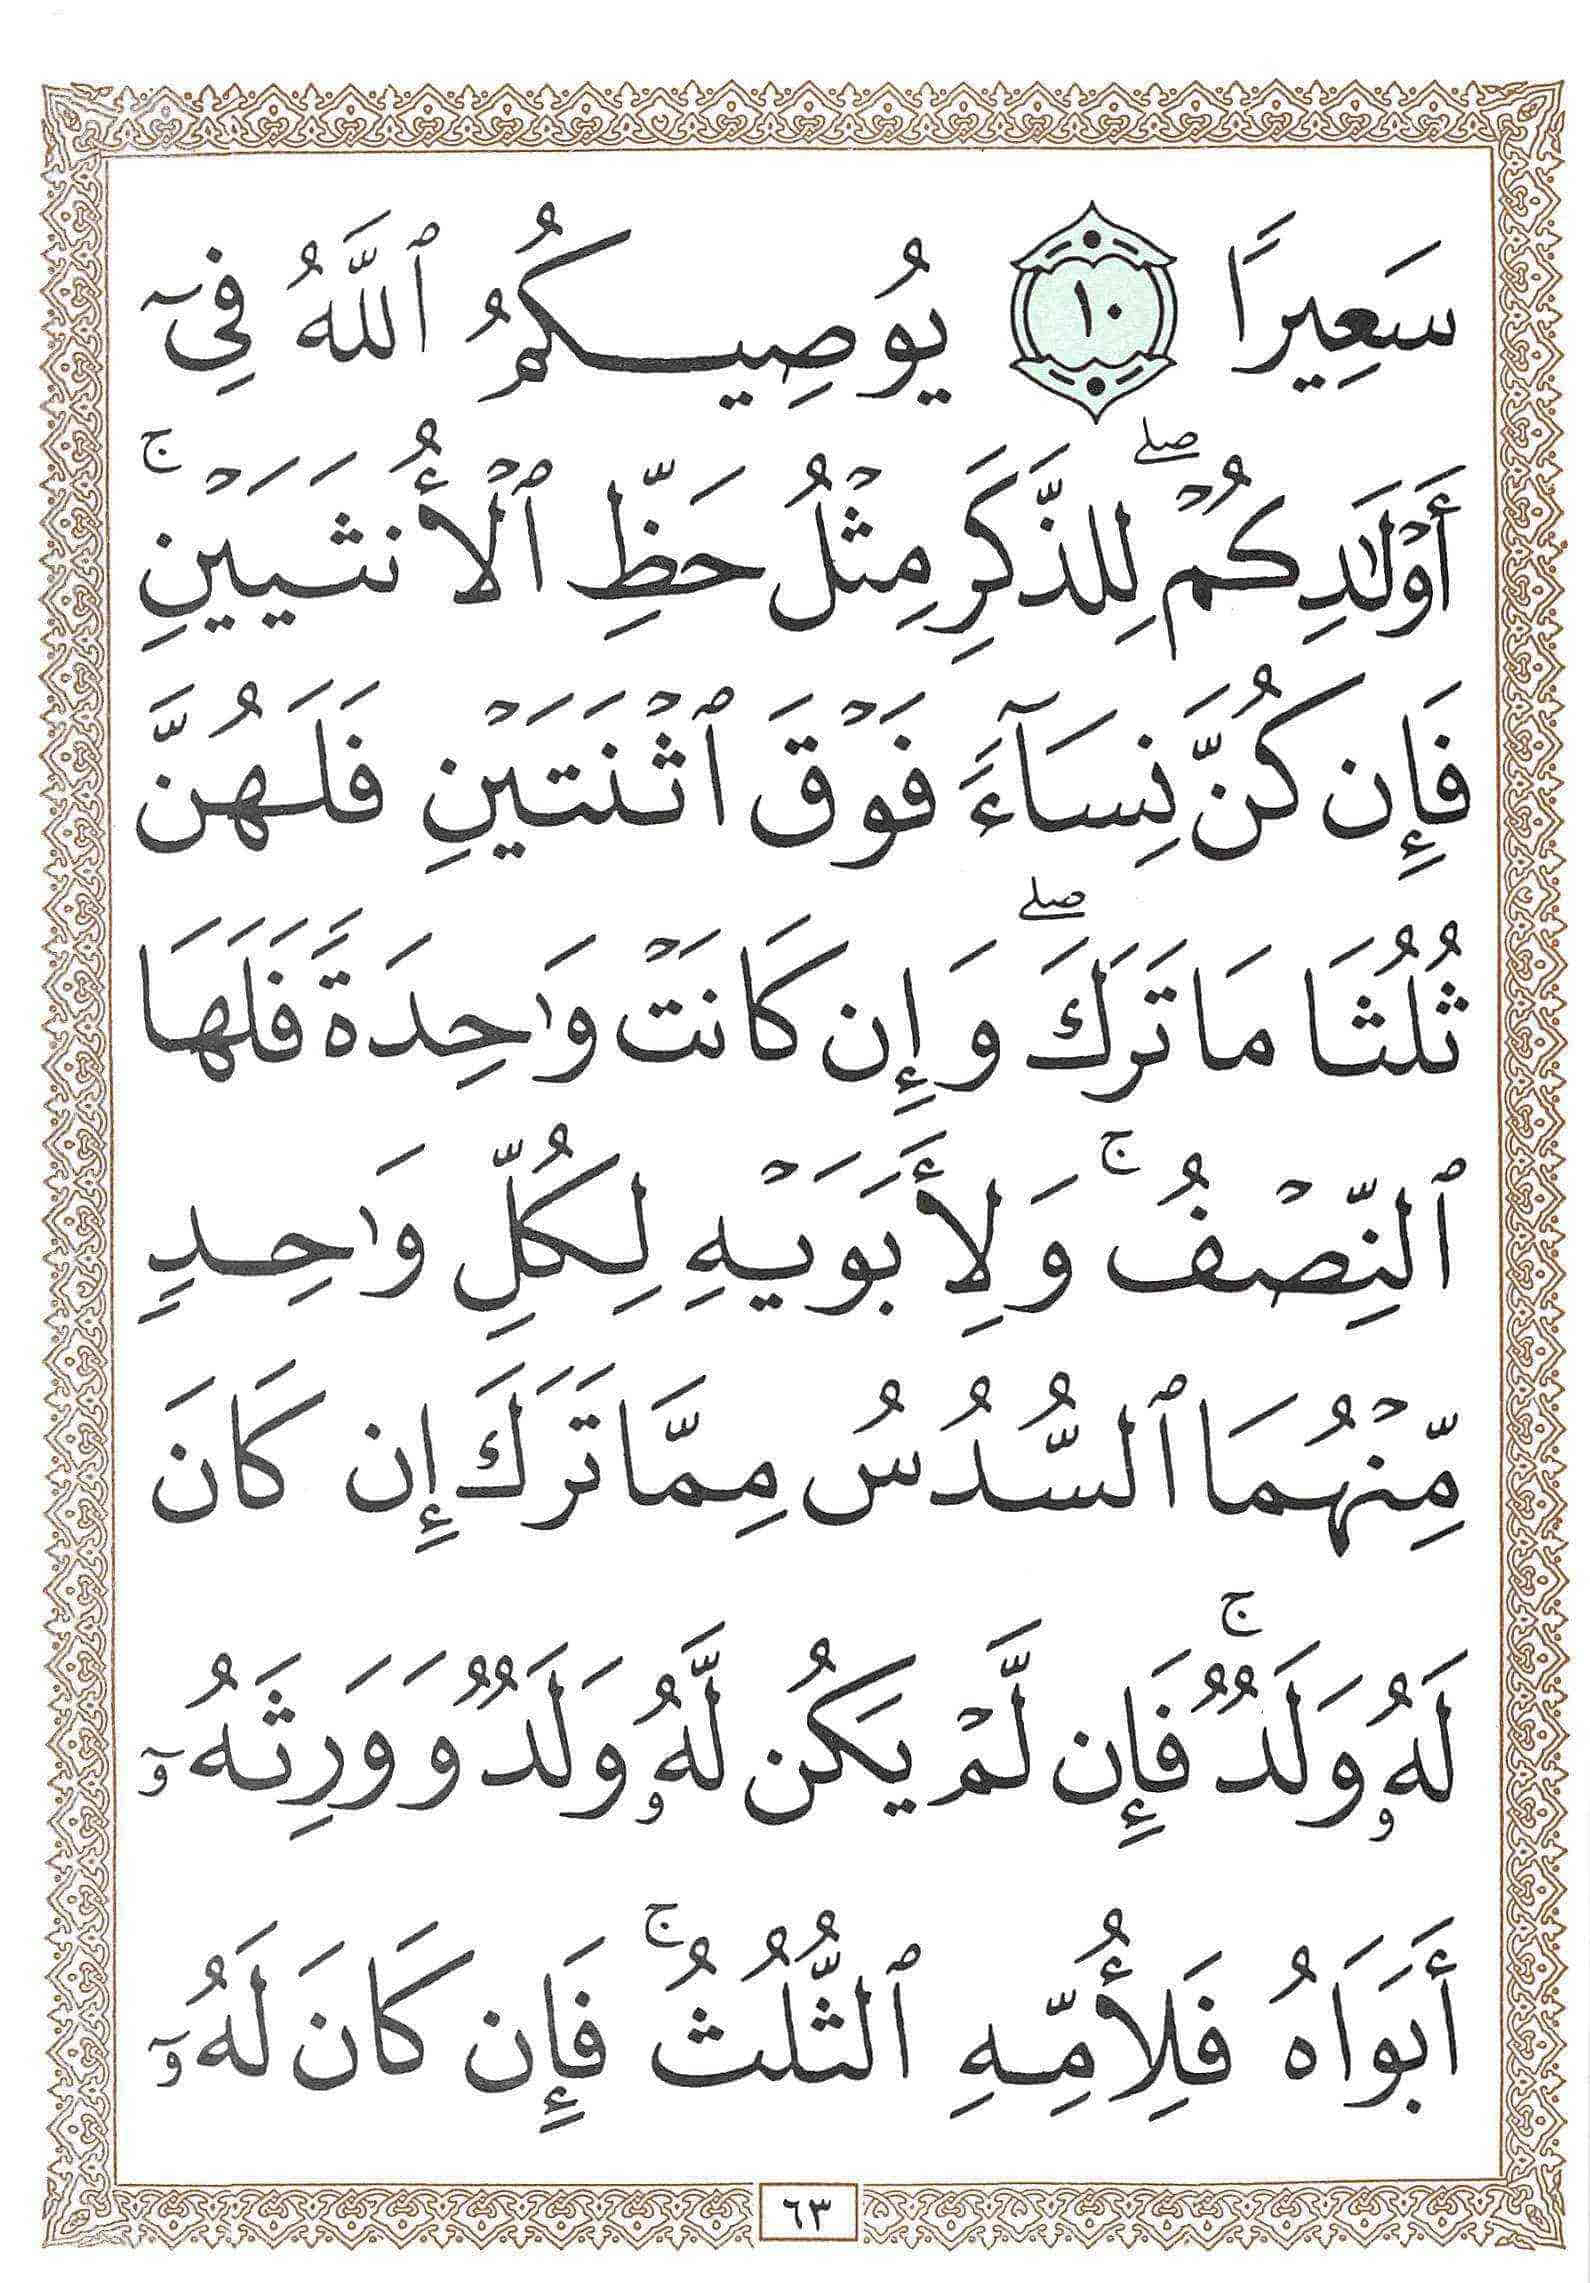 سَعِيرًا ١٠ يُوصِيكُمُ ٱللَّهُ فِىٓ
أَوْلَـٰدِكُمْ ۖ لِلذَّكَرِ مِثْلُ حَظِّ ٱلْأُنثَيَيْنِ ۚ
فَإِن كُنَّ نِسَآءً فَوْقَ ٱثْنَتَيْنِ فَلَهُنَّ
ثُلُثَا مَا تَرَكَ ۖ وَإِن كَانَتْ وَٰحِدَةً فَلَهَا
ٱلنِّصْفُ ۚ وَلِأَبَوَيْهِ لِكُلِّ وَٰحِدٍ
مِّنْهُمَا ٱلسُّدُسُ مِمَّا تَرَكَ إِن كَانَ
لَهُۥ وَلَدٌ ۚ فَإِن لَّمْ يَكُن لَّهُۥ وَلَدٌ وَوَرِثَهُۥٓ
أَبَوَاهُ فَلِأُمِّهِ ٱلثُّلُثُ ۚ فَإِن كَانَ لَهُۥٓ
٦٣